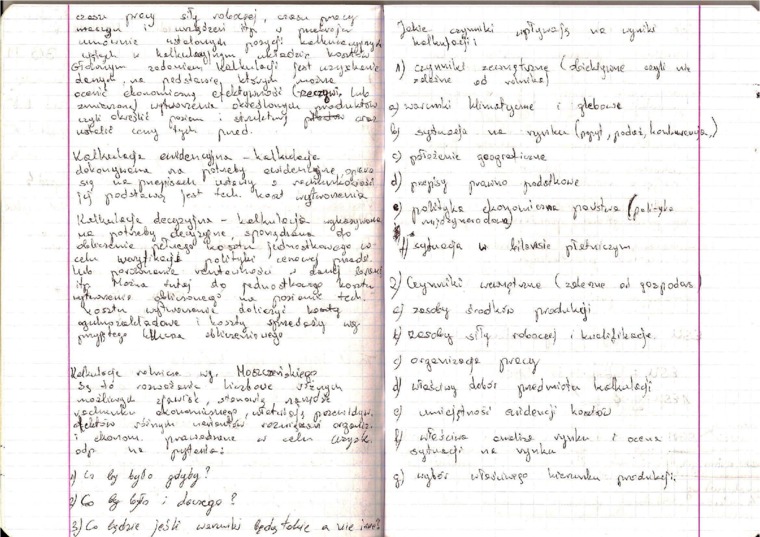 czasu pracy siły roboczej, czasu pracy
maszyn i urządzeń itp. w przekroju
umownie ustalonych pozycji kalkulacyjnych
ujętych w kalkulacyjnym układzie kosztów
Głównym zadaniem kalkulacji jest uzyskanie
danych, na podstawie których można
ocenić ekonomiczną efektywność (rzeczyw. lub
zmienianą) wytworzenia określonych produktów
czyli określić poziom i strukturę oraz
ustalić ceny tych prod.
Kalkulacja ewidencyjna – kalkulacja
dokonywana na potrzeby ewidencyjne, opiera
się na przepisach ustawy o rachunkowości
jej podstawą jest tech. koszt wytworzenia
Kalkulacja decyzyjna – kalkulacja wykonywana
na potrzeby decyzyjne, sporządzana do
obliczenia pełnego kosztu jednostkowego w
celu weryfikacji polityki cenowej przeds.
lub porównania rentowności w danej branży
itp. Można tutaj do jednostkowego kosztu
wytworzenia obliczonego na poziomie tech.
kosztu wytworzenia doliczyć koszty
ogólnozakładowe i koszty sprzedaży wg.
przyjętego klucza obliczeniowego
Kalkulacje rolnicze wg. Moszczeńskiego
Są to rozważania liczbowe różnych
możliwych zjawisk, stanowią narzędzie
rachunku ekonomicznego, ułatwiają przewidyw.
efektów różnych wariantów rozwiązań organiz.
i ekonom. prowadzone w celu uzysk.
odp. na pytania:
1) Co by było gdyby?
2) Co by było i dlaczego?
3) Co będzie jeśli warunki będą takie a nie inne?
Jakie czynniki wpływają na wyniki
kalkulacji:
1) czynniki zewnętrzne (obiektywne czyli nie
zależne od rolnika)
a) warunki klimatyczne i glebowe
b) sytuacja na rynku (popyt, podaż, konkurencja,)
c) położenie geograficzne
d) przepisy prawno podatkowe
e) polityka ekonomiczna państwa (polityka
międzynarodowa)
f) sytuacja w bilansie płatniczym
2) Czynniki wewnętrzne (zależne od gospodars.)
a) zasoby środków produkcji
b) zasoby siły roboczej i kwalifikacje
c) organizacja pracy
d) właściwy dobór przedmiotu kalkulacji
e) umiejętność ewidencji kosztów
f) właściwa analiza rynku i ocena
sytuacji na rynku
g) wybór właściwego kierunku produkcji.